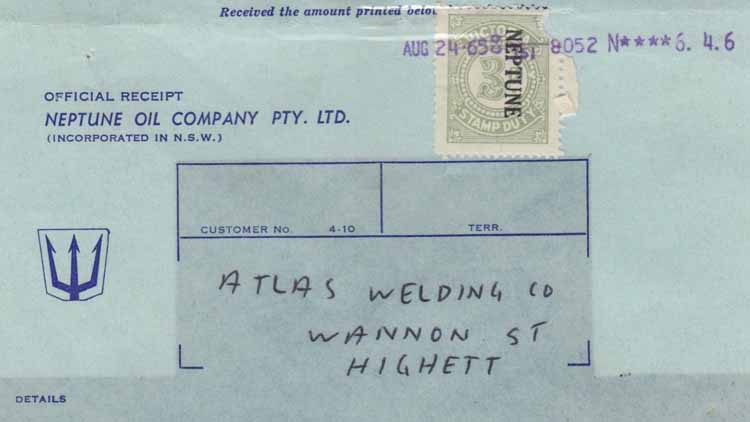 Received the amount printed below
AUG 24-65 8052 N****6. 4.6
3
STAMP DUTY
NEPTUNE
OFFICIAL RECEIPT
NEPTUNE OIL COMPANY PTY. LTD.
(INCORPORATED IN N.S.W.)
CUSTOMER No. 4-10 TERR.
ATLAS WELDING CO
WANNON ST
HIGHETT
DETAILS